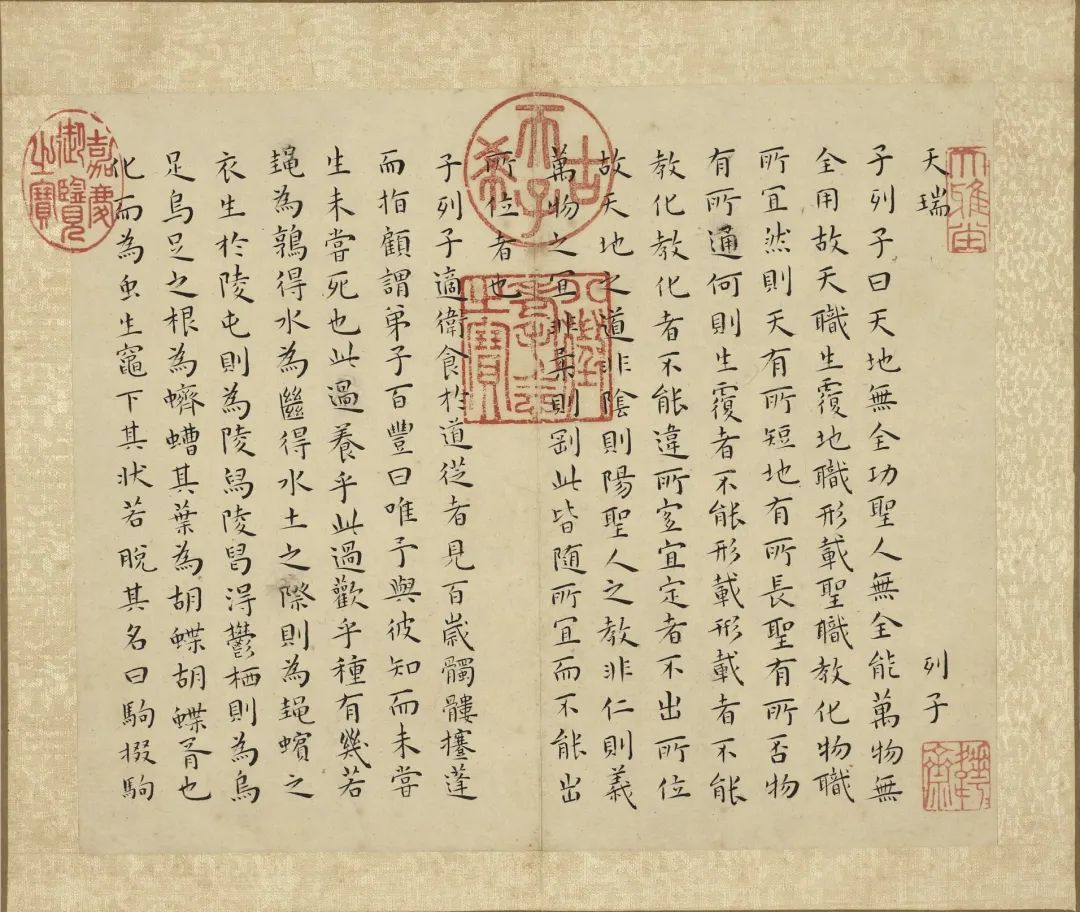 天瑞 列子
子列子曰天地無全功聖人無全能萬物無
全用故天職生覆地職形載聖職教化物職
所宜然則天有所短地有所長聖有所否物
有所通何則生覆者不能形載形載者不能
教化教化者不能違所宜宜定者不出所位
故天地之道非陰則陽聖人之教非仁則義
萬物之宜非柔則剛此皆随所宜而不能出
所位者也
子列子適衛食於道從者見百歲髑髏攓蓬
而指顧謂弟子百豐曰唯予與彼知而未嘗
生未嘗死也此過養乎此過歡乎種有幾若
䵷為鶉得水為㡭得水土之際則為䵷蠙之
衣生於陵屯則為陵舄陵舄得鬱栖則為烏
足烏足之根為蠐螬其葉為胡蝶胡蝶胥也
化而為虫生竈下其狀若脫其名曰駒掇駒
古希天子
八徵耄念之寶
嘉慶御覽之寶